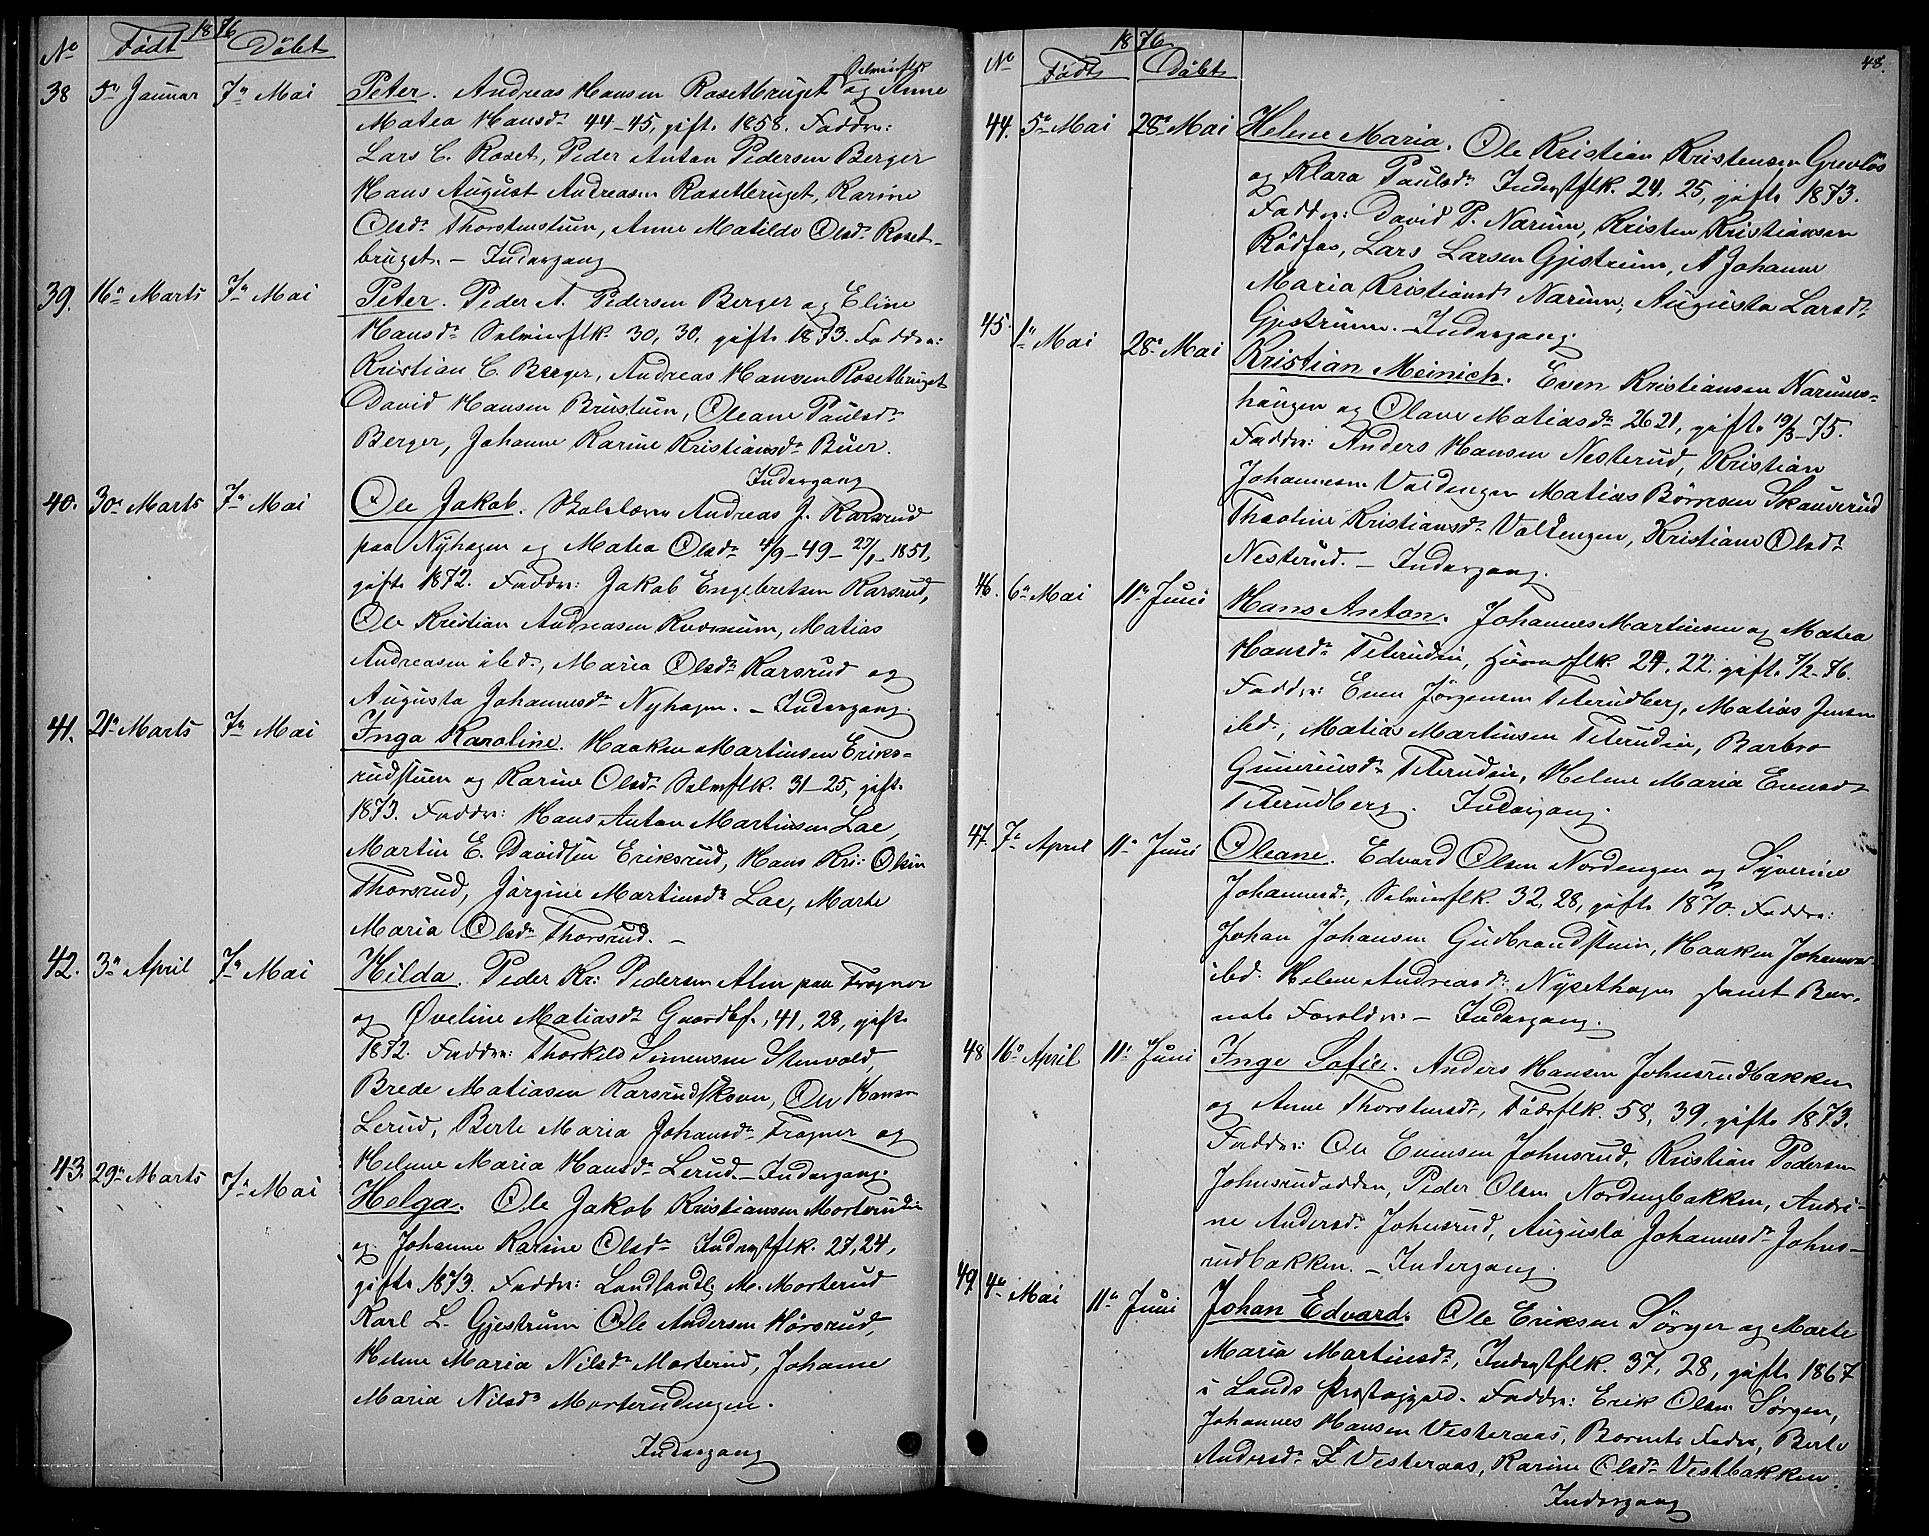 1876
No Födt Döbt
38 5te Januar 7de Mai Peter. Andreas Hansen Rosetbruget og Anne
Matea Hansdr 44-45, gift 1858. Faddre:
Lars C. Roset, Peder Anton Pedersen Berger
Hans August Andreasen Rosetbruget, Karine
Olsdr Thorstenstuen, Anne Matilde Olsdr Roset-
bruget. – Indergang
39. 16de Marts 7de Mai Peter. Peder A. Pedersen Berger og Eline
Hansdr Selveierflk. 30, 30, gift 1873. Faddre:
Kristian C. Berger, Andreas Hansen Rosetbruget
David Hansen Brustuen, Oleane Paulsdr
Berger, Johanne Karine Kristiansdr Buer.
Indergang
40. 30te Marts 7de Mai Ole Jakob. Skolelærer Andreas J. Karsrud
paa Nyhagen og Matea Olsdr 4/9-49 - 1851,
gift 1872. Faddre: Jakob Engebretsen Karsrud,
Ole Kristian Andreasen, Matias
Andreasen ibd., Maria Olsdr Karsrud og
Augusta Johannesdr Nyhagen. – Indergang.
41. 21de Marts 7de Mai Inga Karoline. Haaken Martinsen Eriks-
rudstuen og Karine Olsdr Selveierflk. 31-25, gift.
1873. Faddre: Hans Anton Martinsen Lae,
Martin E. Davidsen Eriksrud, Hans Kr: Olsen
Thorsrud, Jörgine Martinsdr Lae, Marte
Maria Olsdr Thorsrud. –
42. 3de April 7de Mai Hilda. Peder Kr: Pedersen Alm paa Fragner
og Öveline Matiasdr Gaardbf., 41, 28, gift
1872. Faddre: Thorkild Simensen Stenvold,
Brede Matiasen Karsrud, Ole Hansen
Lerud, Berte Maria Johansdr Fragner og
Helene Maria Hansdr Lerud. – Indergang.
43. 29de Marts 7de Mai Helga. Ole Jakob Kristiansen Morterudeie
og Johanne Karine Olsdr Inderstflk. 27, 24,
gift 1873. Faddre: Landhandler Morterud
Karl L. Gjestrum Ole Andersen Hörsrud,
Helene Maria Nilsdr Morterud, Johanne
Maria Nilsdr Morterudengen.
Indergang
48.
1876
No Födt Döbt
44. 5te Mai 28de Mai Helene Maria. Ole Kristian Kristensen Grevlös
og Klara Paulsdr Inderstflk. 24, 25, gift 1873.
Faddre: David P. Narum, Kristen Kristiansen
Rödfos, Lars Larsen Gjestrum, Johanne
Maria Kristiansdr Narum, Augusta Larsdr
Gjestrum. – Indergang.
45. 1te Mai 28de Mai Kristian Meinich. Even Kristiansen Narums-
haugen og Olave Matiasdr 26 21, gift 19/3-75.
Faddre: Anders Hansen Nesterud, Kristian
Johannesen Valdengen Matias Börresen Skauverud
Theoline Kristiansdr Valdengen, Kristiane Olsdr
Nesterud. – Indergang.
46. 6te Mai 11te Juni Hans Anton. Johannes Martinsen og Matea
Hansdr Teterudeie, Huusmflk. 24, 22. gift 7/2-76.
Faddre: Even Jörgensen Teterudberg, Matias Jensen
ibd., Matias Martinsen Teterudeie, Barbro
Gunerinsdr Teterudeie, Helene Maria Evensdr
Teterudberg. Indergang.
47. 7de April 11te Juni Oleane. Edvard Olsen Nordengen og Syverine
Johannesdr, Selveierflk. 32, 28, gift 1870. Faddre:
Johan Johansen Gudbrandstuen, Haaken Johannesen
ibd. Helene Andreasdr Nysethagen samt Bar-
nets Foreldre. – Indergang.
48 16de April 11te Juni Inge Sofie. Anders Hansen Johnsrudbakken
og Anne Thorstensdr, Föderflk. 58, 39, gift 1873.
Faddre: Ole Evensen Johnsrud, Kristian Pedersen
Johnsrudodden, Peder Olsen Nordengbakken, Andri-
ne Andersdr Johnsrud, Augusta Johannesdr Johns-
rudbakken. – Indergang.
49. 4de Mai 11te Juni Johan Edvard. Ole Eriksen Sörgen og Marte
Maria Martinsdr, Inderstflk. 37, 28, gift 1867
i Lands Prestegjæld. Faddre: Erik Olsen Sörgen,
Johannes Hansen Vesteraas, Barnets Fader, Berte
Andersdr Vesteraas, Karine Olsdr Vestbakken.
Indergang